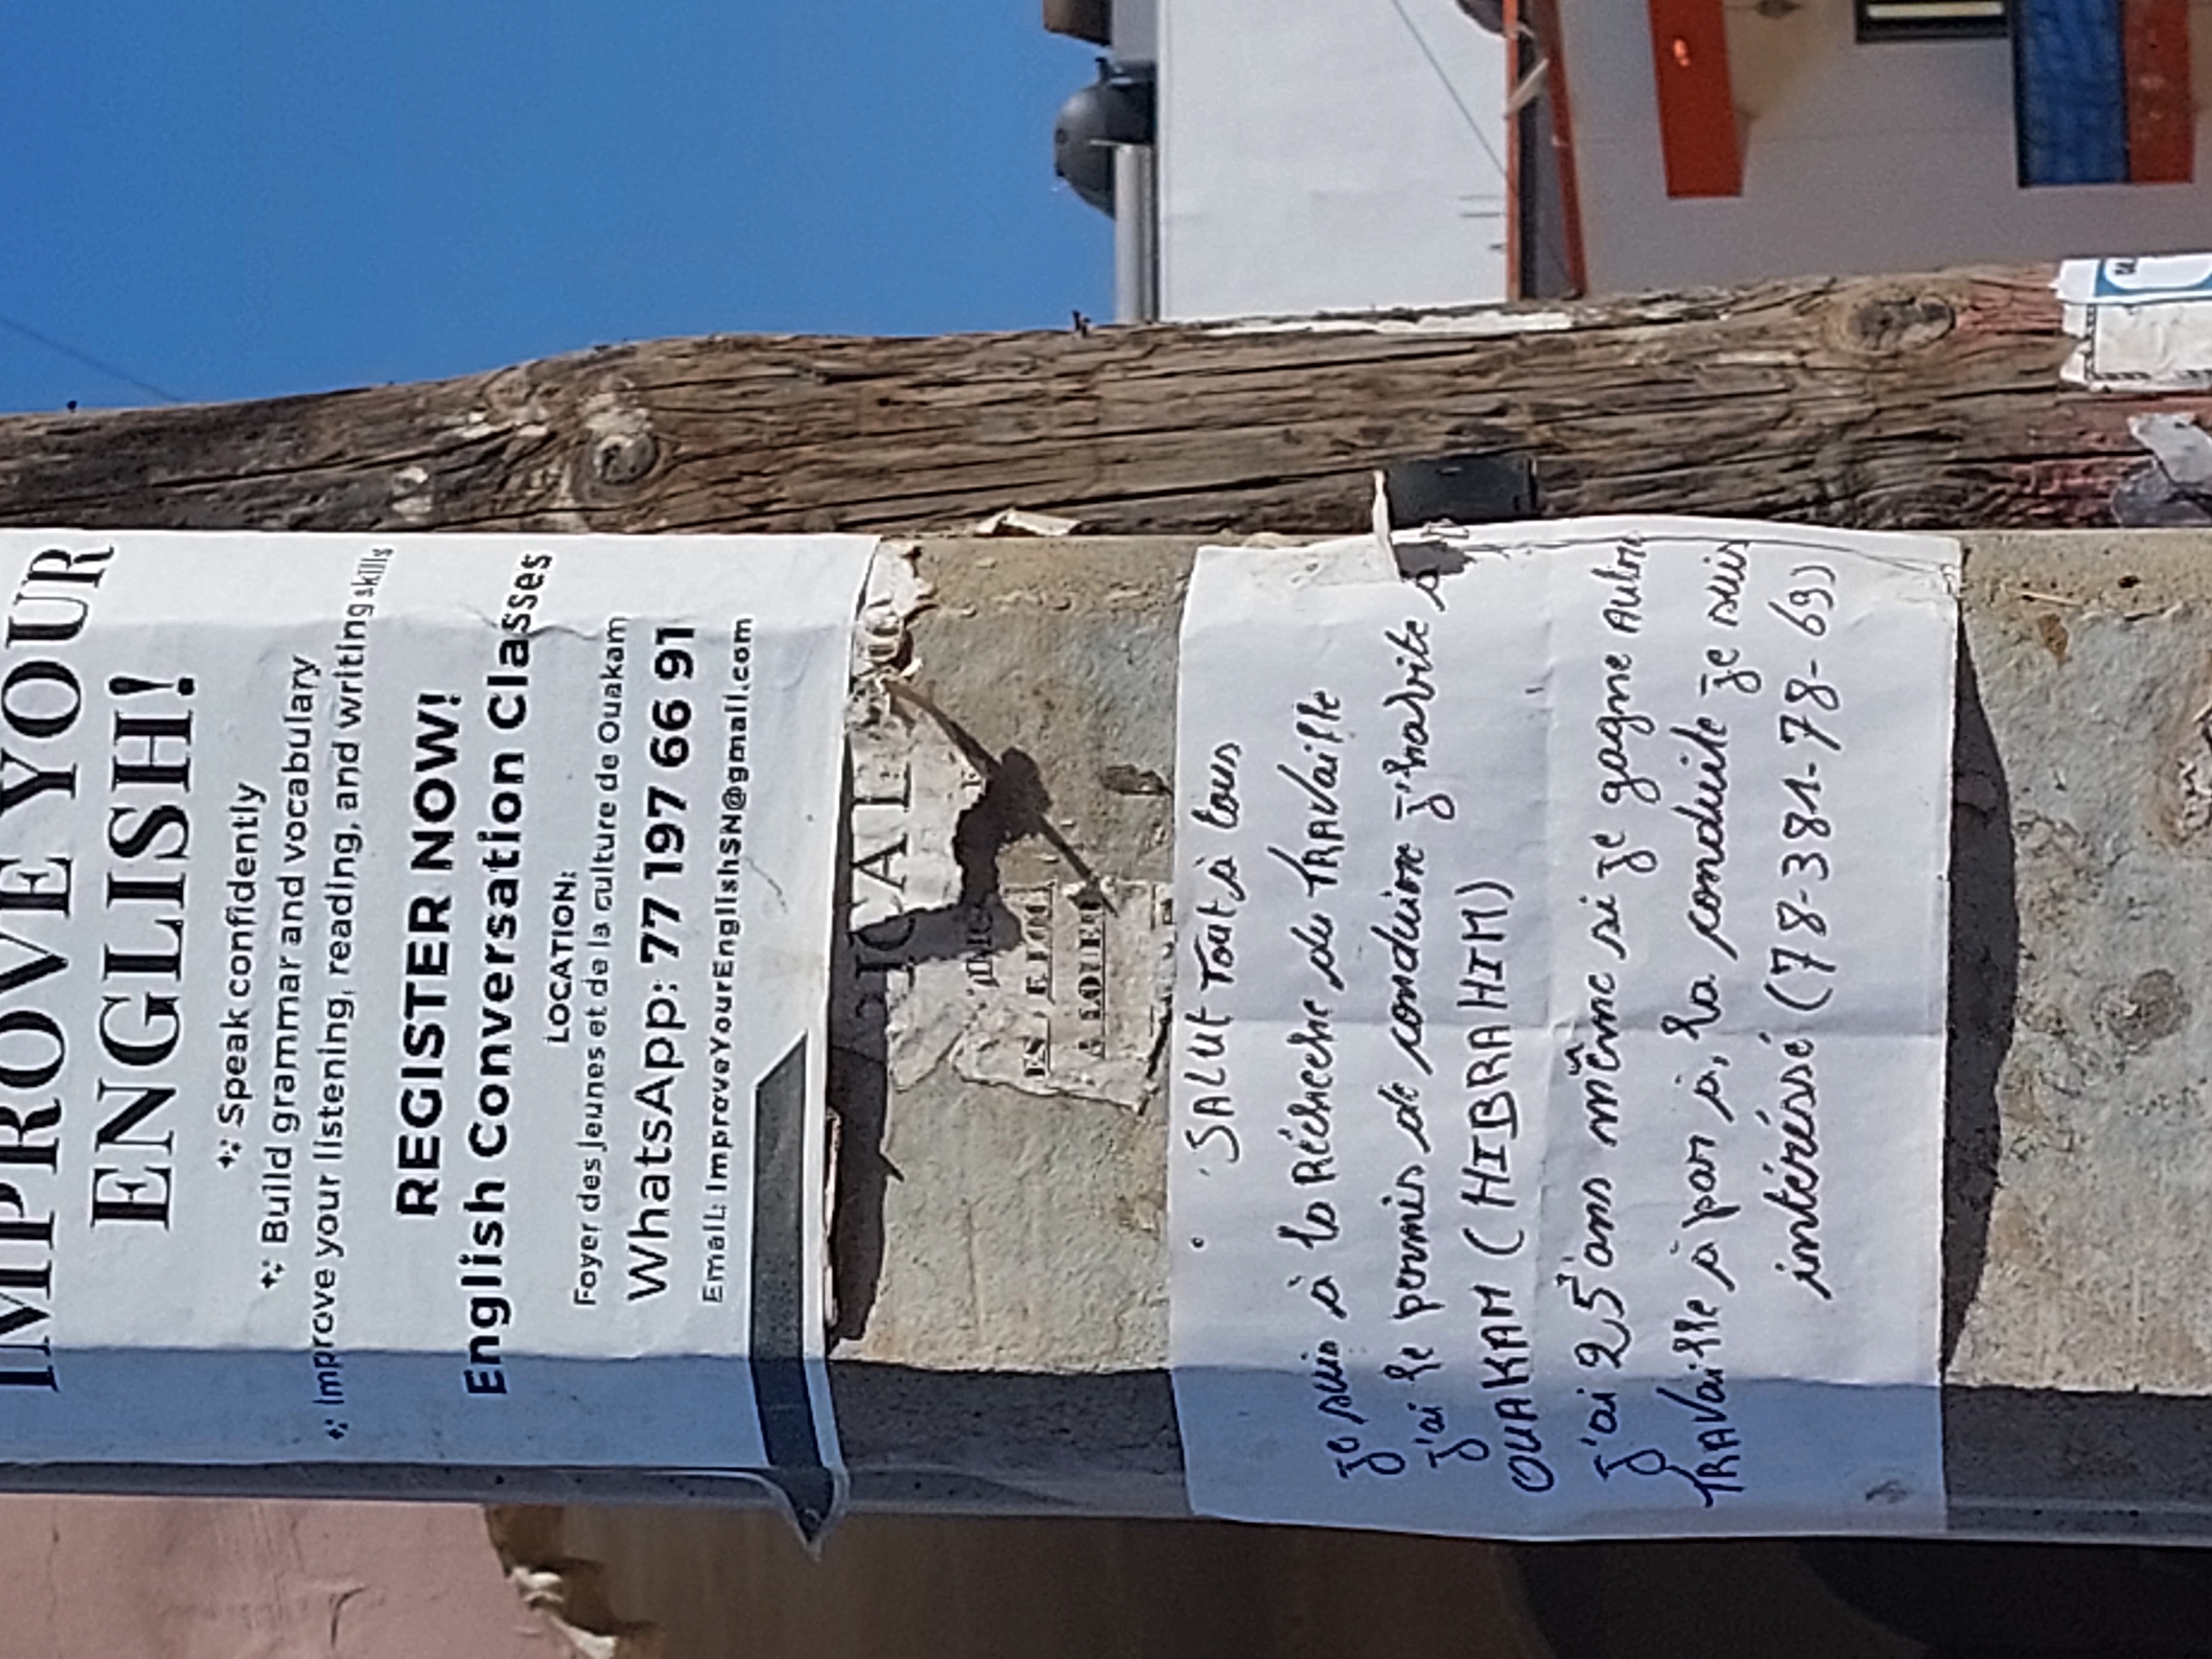 IMPROVE YOUR
ENGLISH!
Speak confidently
Build grammar and vocabulary
Improve your listening, reading, and writing skills
REGISTER NOW!
English Conversation Classes
LOCATION:
Foyer des Jeunes et de la culture de Ouakam
WhatsApp: 77 197 66 91
Email: ImproveYourEnglishSN@gmail.com
A LOUER
SALUT Tout à tous
je suis à la Réchecche du TRAVaille
j'ai le permis de conduire j'havite à
OUAKAM (HIBRAHIM)
j'ai 25 ans même si je gagne autre
TRAVaille à par à, la conduite je suis
intéréssé (78-381-78-69)